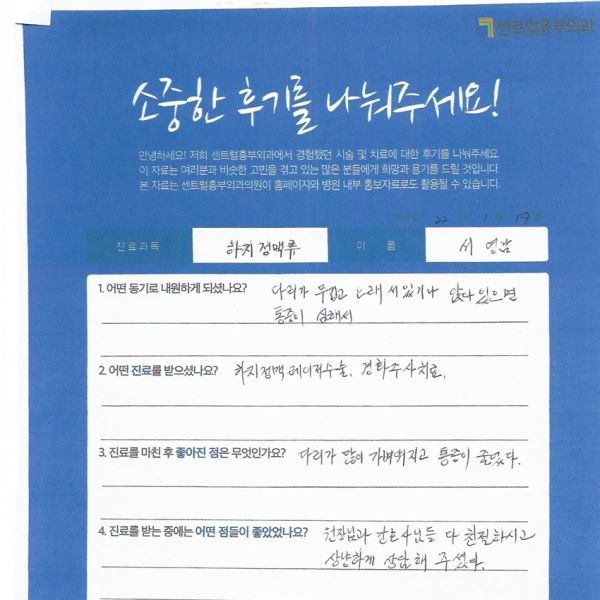 센트럴흉부외과
소중한 후기를 나눠주세요!
안녕하세요! 저희 센트럴흉부외과에서 경험했던 시술 및 치료에 대한 후기를 나눠주세요.
이 자료는 여러분과 비슷한 고민을 겪고 있는 많은 분들에게 희망과 용기를 드릴 것입니다.
본 자료는 센트럴흉부외과의원이 홈페이지와 병원 내부 홍보자료로도 활용될 수 있습니다.
22 년 1 월 19 일
진료과목 하지정맥류 이 름 서영감
1. 어떤 동기로 내원하게 되셨나요? 다리가 무겁고 오래 서있거나 앉아 있으면
통증이 심해서
2. 어떤 진료를 받으셨나요? 하지정맥 레이저수술, 경화주사치료.
3. 진료를 마친 후 좋아진 점은 무엇인가요? 다리가 많이 가벼워지고 통증이 줄었다.
4. 진료를 받는 중에는 어떤 점들이 좋았었나요? 원장님과 간호사님들 다 친절하시고
상냥하게 상담해 주셨다.